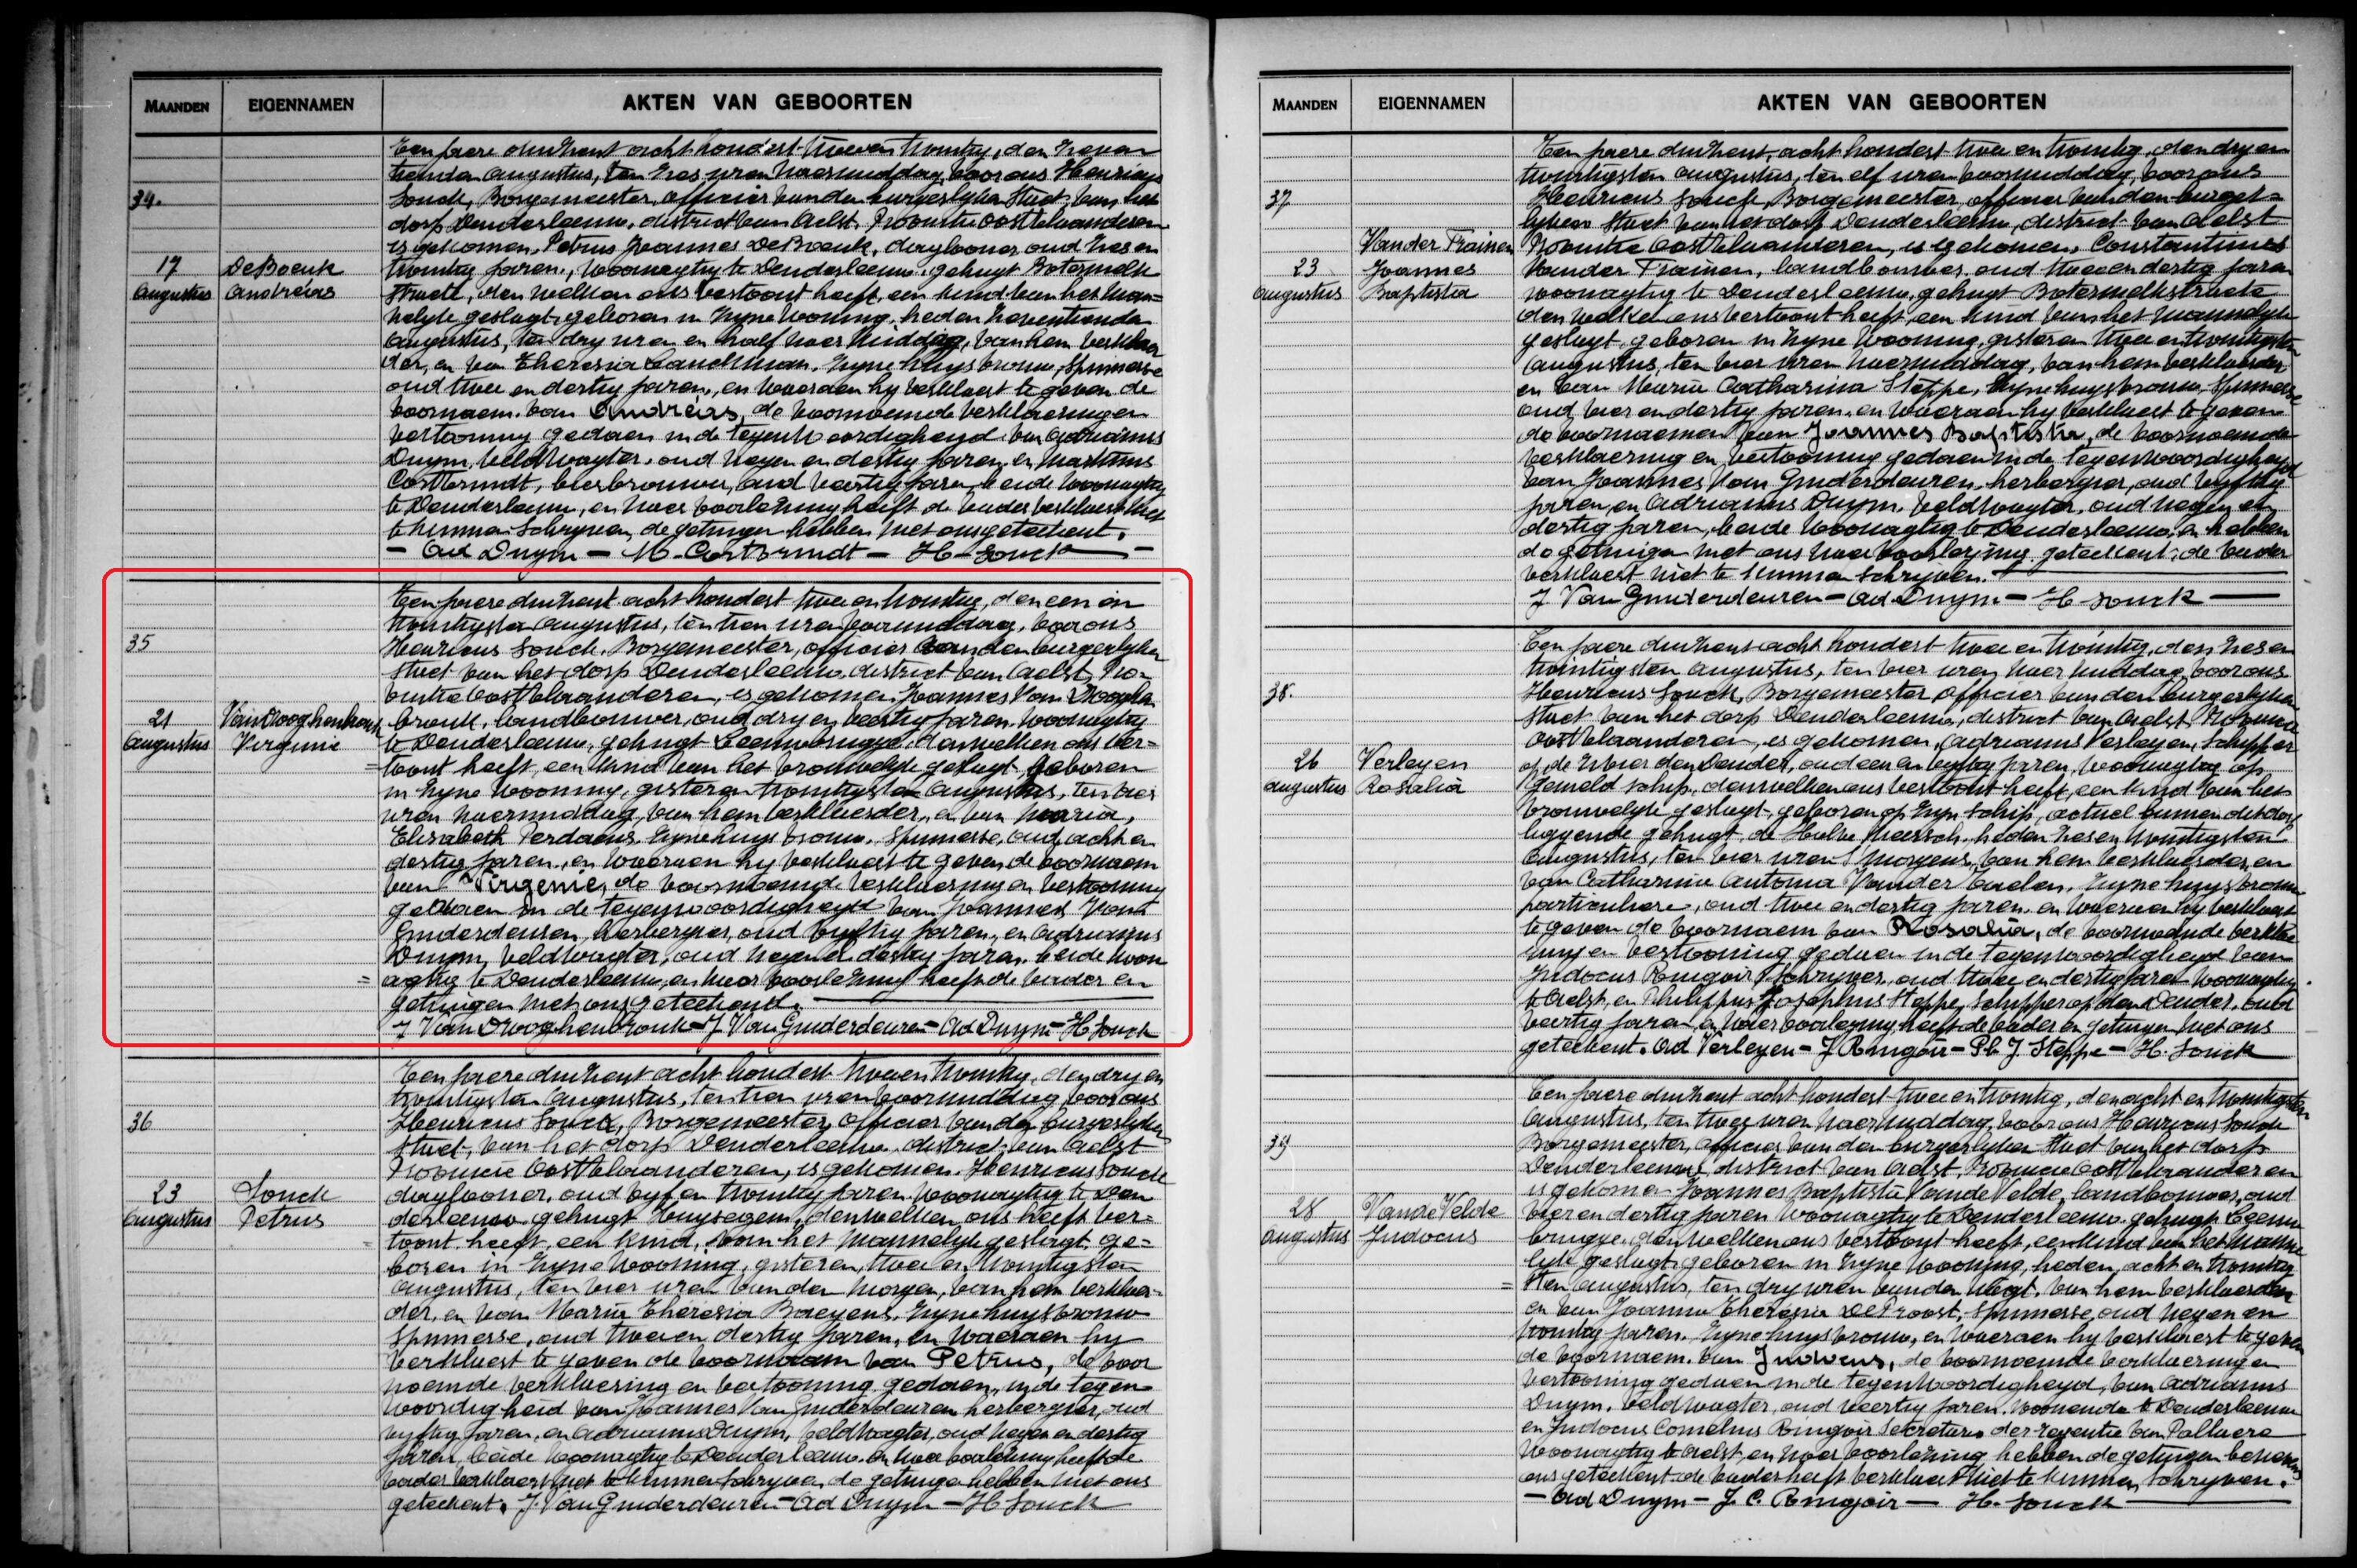 MAANDEN EIGENNAMEN AKTEN VAN GEBOORTEN
Een jaere duizent acht hondert twee en twintig, den zeven
tienden augustus, ten zes uren naermiddag, voor ons Henricus
34. Sonck, Borgemeester, officier van den burgerlyken Staet van het
dorp Denderleeuw, district van Aelst, Provintie Oostvlaenderen
is gekomen, Petrus Joannes De Boeck, daglooner, oud zes en
17 De Boeck twintig jaren, woonagtig te Denderleeuw, gehugt Botermelk
Augustus Andreas straete, den welken ons vertoont heeft, een kind van het man=
nelyk geslagt, geboren in zyne Wooning, heden zeventienden
augustus, ten dry uren en half naer middag, van hem verklaer
der, en van Theresia Cauckman, zyne huysvrouw, Spinnesse
oud twee en dertig jaren, en waeraen hy verklaert te geven de
voornaem van Andreas, de voornoemde verklaering en
vertooning gedaen in de tegenwoordigheyd van Adrianus
Duym, Veldwagter, oud negen en dertig jaren, en Martinus
Oostbrundt, bierbrouwer, oud veertig jaren, beide woonagtig
te Denderleeuw, en naer voorlezing heeft de vader verklaert niet
te kunnen schryven, de getuigen hebben met ons geteekent.
— Ad Duym — M. Oostbrundt — H. Sonck —
Een jaere duizent acht hondert twee en twintig, den een en
twintigsten augustus, ten tien uren voormiddag, voor ons
35 Henricus Sonck, Borgemeester, officier van den burgerlyken
Staet van het dorp Denderleeuw, district van Aelst, Pro=
vintie Oostvlaanderen, is gekomen, Joannes Van Drooghen
21 Van Drooghenbrouk brouk, landbouwer, oud dry en veertig jaren, woonagtig
Augustus Virginie te Denderleeuw, gehugt Leeuwbrugge, den welken ons ver=
= toont heeft, een kind van het vrouwelyk geslagt, geboren
in zyne Wooning, gisteren twintigsten Augustus, ten vier
uren naermiddag, van hem verklaerder, en van Maria,
Elisabeth Perdaens, zyne huysvrouw, Spinnesse, oud acht en
dertig jaren, en waeraen hy verklaert te geven de voornaem
van Virgenie, de voornoemde verklaering en vertooning
gedaen in de tegenwoordigheyd van Joannes Van
Ginderdeuren, herbergier, oud vyftig jaren, en Adrianus
Duym, Veldwagter, oud negen en dertig jaren, beide woon
= agtig te Denderleeuw, en naer voorlezing heeft de vader en
getuigen met ons geteekend.
J Van Drooghenbrouk — J Van Ginderdeuren — Ad Duym — H Sonck
Een jaere duizent acht hondert twee en twintig, den dry en
twintigsten Augustus, ten tien uren voormiddag, voor ons
36 Henricus Sonck, Borgemeester, officier van den burgerlyken
Staet, van het dorp Denderleeuw, district van Aelst
Provincie Oostvlaanderen, is gekomen, Henricus Sonck
23 Sonck daglooner, oud vyf en twintig jaren, woonagtig te Den
Augustus Petrus derleeuw, gehugt Huyssegem, den welken ons heeft ver=
= toont heeft, een kind, van het mannelyk geslagt, ge=
boren in zyne Wooning, gisteren, twee en twintigsten
augustus, ten vier uren van den morgen, van hem verklaer=
der, en van Maria Theresia Baeyens, zyne huysvrouw
Spinnesse, oud twee en dertig jaren, en waeraen hy
verklaert te geven de voornaem van Petrus, de voor
noemde verklaering en vertooning gedaen, in de tegen
woordigheid van Joannes Van Ginderdeuren herbergier, oud
vyftig jaren, en Adrianus Duym, veldwagter, oud negen en dertig
jaren, beide woonagtig te Denderleeuw, en naer voorlezing heeft de
vader verklaert niet te kunnen schryven, de getuigen hebben met ons
geteekent. J. Van Ginderdeuren — Ad Duym — H Sonck
MAANDEN EIGENNAMEN AKTEN VAN GEBOORTEN
Een jaere duizent, acht hondert twee en twintig, den dry en
twintigsten augustus, ten elf uren voormiddag, voor ons
37 Henricus Sonck, Borgemeester, officier van den burger=
lyken Staet van het dorp Denderleeuw, district van Aelst
Van der Frainen Provintie Oostvlaanderen, is gekomen, Constantinus
23 Joannes Vander Frainen, landbouwer, oud twee en dertig jaren
Augustus Baptista woonagtig te Denderleeuw, gehugt Botermelkstraete
den welken ons vertoont heeft, een kind van het mannelyk
geslagt, geboren in zyne Wooning, gisteren twee en twintigsten
Augustus, ten vier uren naermiddag, van hem verklaerder,
en van Maria Catharina Steppe, zyne huysvrouw, Spinnesse
oud vier en dertig jaren, en waeraen hy verklaert te geven
de voornaemen van Joannes Baptista, de voornoemde
verklaering en vertooning gedaen in de tegenwoordigheyd
van Joannes Van Ginderdeuren, herbergier, oud vyftig
jaren, en Adrianus Duym, Veldwagter, oud negen en
dertig jaren, beide woonagtig te Denderleeuw, en hebben
de getuigen met ons naer voorlezing geteekent, de vader
verklaert niet te kunnen schryven.
J Van Ginderdeuren — Ad. Duym — H Sonck —
Een jaere duizent acht hondert twee en twintig, den zes en
twintigsten augustus, ten vier uren naer middag, voor ons
38. Henricus Sonck, Borgemeester officier van den burgerlyken
Staet van het dorp Denderleeuw, district van Aelst, Provincie
Oostvlaanderen, is gekomen, Adrianus Verleyen, schipper
26 Verleyen op de rivier den Dender, oud een en vyftig jaren, woonagtig op
Augustus Rosalia gemeld schip, den welken ons vertoont heeft, een kind van het
vrouwelyk geslagt, geboren op zyn schip, actuel binnen dit dorp
liggende gehugt de Hulve Meersch, heden zes en twintigsten
Augustus, ten vier uren 's morgens, van hem verklaerder, en
van Catharina Antonia Vander Taelen, zyne huysvrouw
particuliere, oud twee en dertig jaren, en waeraen hy verklaert
te geven de voornaem van Rosalia, de voornoemde verklae
ring en vertooning gedaen in de tegenwoordigheyd van
Judocus Ringoir, Schryver, oud twee en dertig jaren woonagtig
te Aelst, en Philippus Josephus Steppe, Schipper op den Dender, oud
veertig jaren, en naer voorlezing heeft de vader en getuigen met ons
geteekent. Ad Verleyen — J Ringoir — Ph J. Steppe — H. Sonck
Een jaere duizent acht hondert twee en twintig, den acht en twintigsten
Augustus, ten twee uren naermiddag, voor ons Henricus Sonck
39 Borgemeester, officier van den burgerlyken Staet van het dorp
Denderleeuw, district van Aelst, Provincie Oostvlaanderen
is gekomen Joannes Baptista Van de Velde, landbouwer, oud
28 Van de Velde vier en dertig jaren woonagtig te Denderleeuw, gehugt Leeuw
Augustus Judocus brugge, den welken ons vertoont heeft, een kind van het manne
lyk geslagt, geboren in zyne Wooning, heden, acht en twintig
= sten augustus, ten dry uren van den nagt, van hem verklaerder
en van Joanna Theresia De Proost, Spinnesse, oud negen en
twintig jaren, zyne huysvrouw, en waeraen hy verklaert te geven
de voornaem van Judocus, de voornoemde verklaering en
vertooning gedaen in de tegenwoordigheyd, van Adrianus
Duym, veldwagter, oud veertig jaren, woonende te Denderleeuw
en Judocus Cornelius Ringoir Secretaris der regentie van Pollaere
woonagtig te Aelst, en naer voorlezing hebben de getuigen benevens
ons geteekent, de vader heeft verklaert niet te kunnen schryven.
— Ad Duym — J. C. Ringoir — H. Sonck —